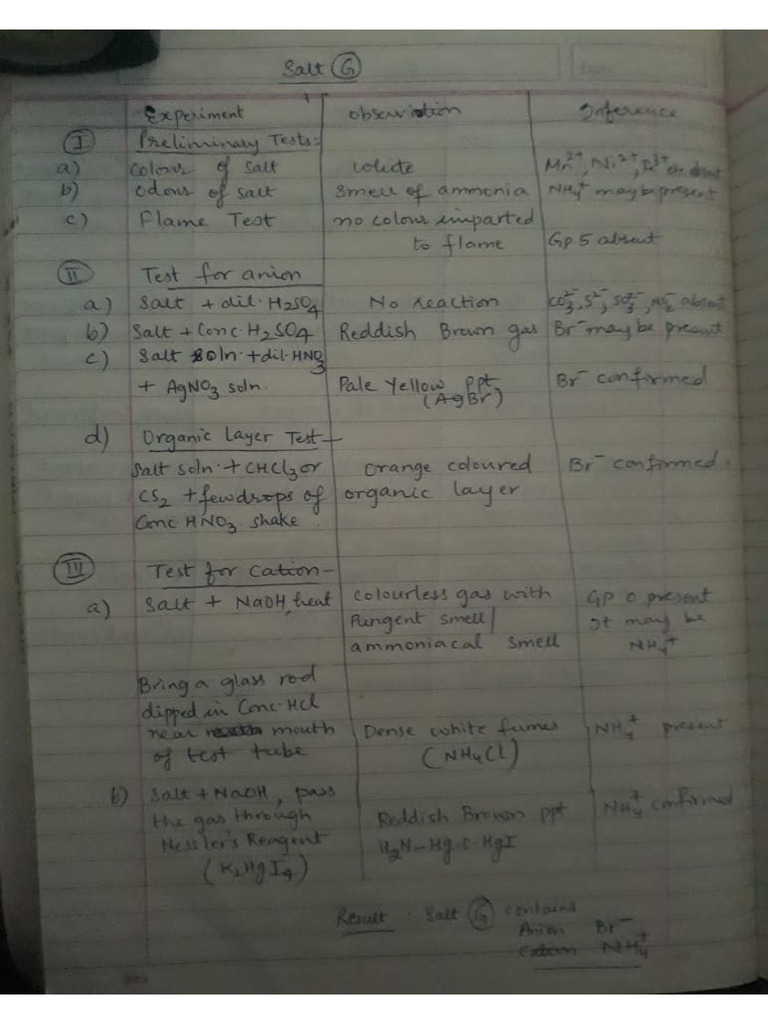 Salt G
Experiment observation Inference
I Preliminary Tests:
a) Colour of salt white Mn2+, Ni2+, absent
b) Odour of salt Smell of ammonia NH4+ may be present
c) Flame Test no colour imparted
to flame Gp.5 absent
II Test for anion
a) Salt + dil. H2SO4 No reaction CO3 2-, S2-, SO3 2-, NO2- absent
b) Salt + Conc. H2SO4 Reddish Brown gas Br- may be present
c) Salt soln. + dil. HNO3
+ AgNO3 soln. Pale Yellow ppt Br- confirmed
(AgBr)
d) Organic Layer Test-
Salt soln. + CHCl3 or orange coloured Br- confirmed.
CS2 + few drops of organic layer
Conc HNO3 shake.
III Test for Cation-
a) Salt + NaOH, heat colourless gas with GP 0 present
Pungent smell/ It may be
ammoniacal smell NH4+
Bring a glass rod
dipped in Conc. HCl
near mouth Dense white fumes NH4+ present
of test tube (NH4Cl)
b) Salt + NaOH, pass NH4+ confirmed
the gas through Reddish Brown ppt
Nessler's Reagent H2N-Hg-O-HgI
(K2HgI4)
Result Salt G contains
Anion Br-
Cation NH4+